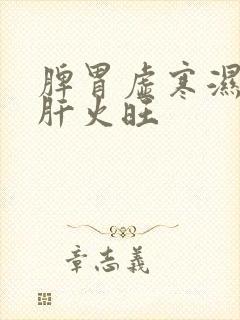 脾胃虚寒濕
肝火旺
章志義